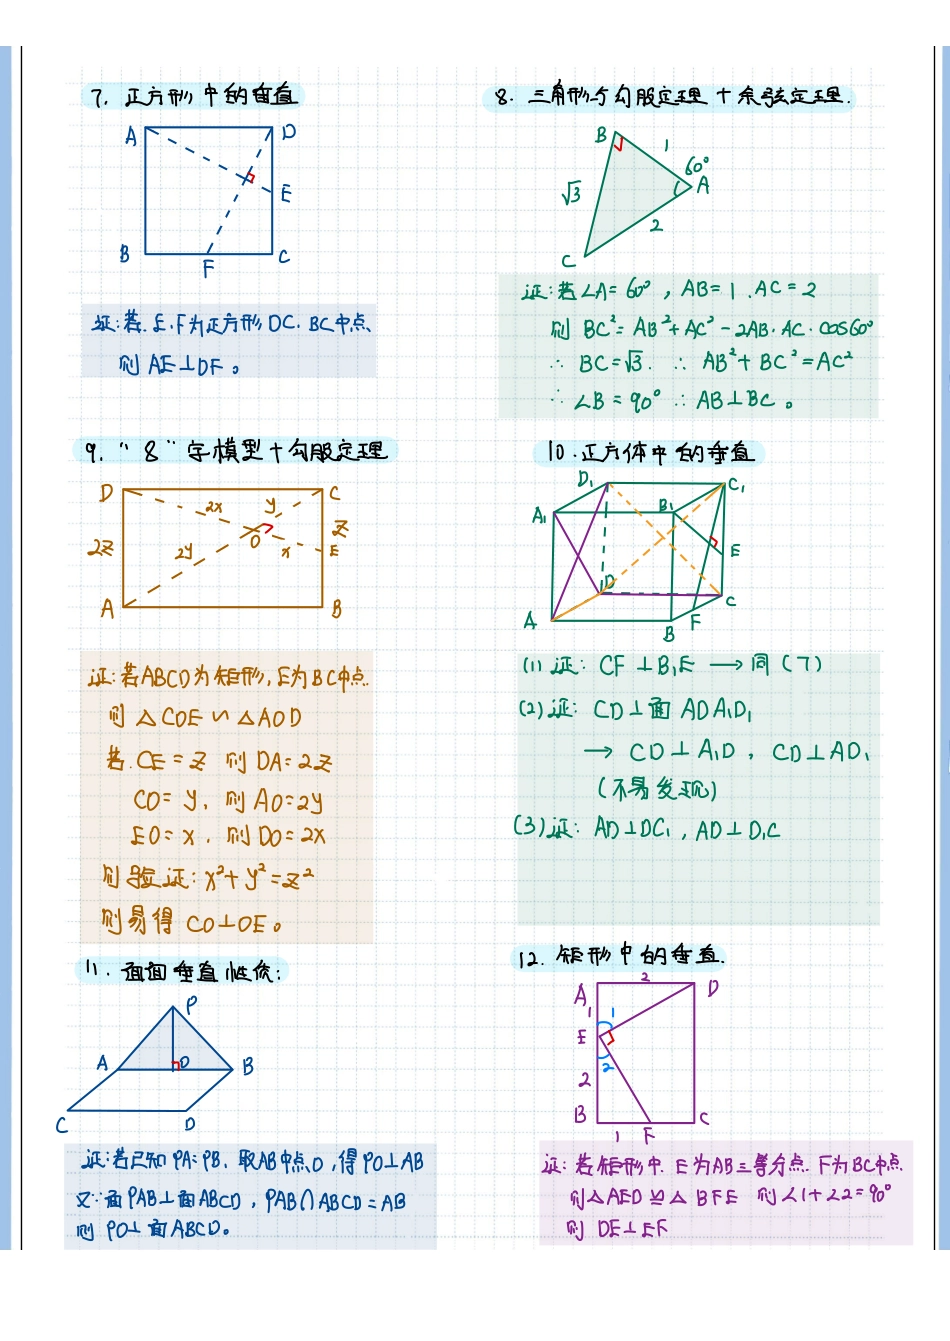 7. 正方形中的垂直
A
D
E
B
F
C
证:若.E.F为正方形DC.BC中点、
则 AE⊥DF。
8. 三角形与勾股定理十余弦定理.
B
1
60°
A
√3
2
C
证:若∠A=60°,AB=1.AC=2
则 BC²=AB²+AC²-2AB·AC·cos60°
∴ BC=√3. ∴ AB²+BC²=AC²
∴ ∠B=90° ∴ AB⊥BC。
9.“8”字模型十勾股定理
D
2x
y
C
2z
z
O
2y
x
E
A
B
证:若ABCD为矩形,E为BC中点.
则 △COE∽△AOD
若.CE=z 则 DA=2z
CO=y, 则 AO=2y
EO=x, 则 DO=2x
则验证:x²+y²=z²
则易得 CO⊥OE。
10.正方体中的垂直
D₁
C₁
A₁
B₁
E
D
C
A
B
F
(1)证: CF⊥B₁E → 同(7)
(2)证: CD⊥面ADA₁D₁
→ CD⊥A₁D, CD⊥AD₁
(不易发现)
(3)证: AD⊥DC₁,AD⊥D₁C
11.面面垂直性质:
P
A
O
B
C
D
证:若已知PA=PB.取AB中点O,得PO⊥AB
又∵面PAB⊥面ABCD,PAB∩ABCD=AB
则 PO⊥面ABCD。
12. 矩形中的垂直.
2
A
D
1
1
E
2
2
B
C
1
F
证:若矩形中.E为AB三等分点.F为BC中点.
则△AED≌△BFE 则∠1+∠2=90°
则 DE⊥EF